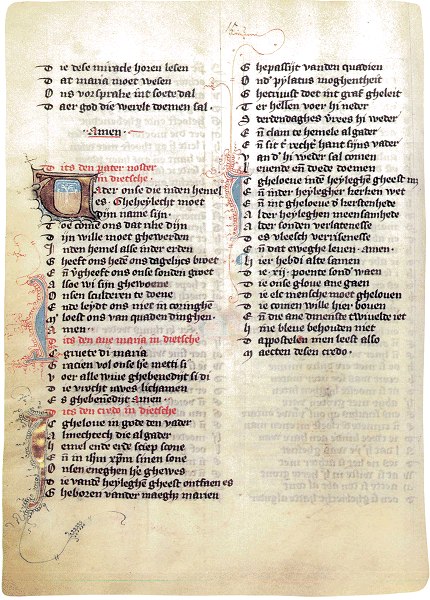 Die dese miracle horen lesen
Dat maria moet wesen
Ons vorsprake int soete dal
Daer god die werelt doemen sal.
Amen.
Dits den pater noster
in dietsche
Vader onse die inden hemel
es. Gheheylecht moet
dijn name sijn.
Toe come ons dat rike dijn
Dijn wille moet ghewerden
Inden hemel alse inder erden
Gheeft ons hedē ons dagelijcs bwet
Eñ v̄gheeft ons onse sonden
Alsoe wi sijn ghewoene
Onsen sculderen te doene
Ende leydt ons niet in coringhē
Maer loest ons van quaden dinghen
Amen.
Dits den ave maria in dietsche
Gegruete di maria
Gracien vol onse hē metti si
Voer alle wiue ghebenedijt si di
Die vrucht uwes lichamen
Es ghebenedijt Amen.
Dits den credo in dietsche
Ic gheloue in gode den vader
Almechtech die algader
Hemel ende erde sciep scone
Eñ in ihm xpm sinen sone
Onsen eneghen hē ghewes
Die vanden heyleghē gheest ontfaen es
Gheboren vander maeght marien
Ghepassijt vanden quadien
Ond' pylatus moghentheit
Ghecruust doet int graf gheleit
Ter hellen voer hi neder
Derdendaghes v̄rees hi weder
Eñ clam te hemele algader
Eñ sit t' recht' hant sijns vader
Vand' hi weder sal comen
Leuende eñ doede doemen
Ic gheloeue indē heyleghē gheest mijn
Eñ inder heylegher kerken wet
Eñ int gheloeue d' kerstenhede
Alder heyleghen meensamhede
Alder sonden verlatenesse
Des vleesch verrisenesse
Eñ dat eweghe leuen. Amen.
Hier hebdi alte samen
Die .xij. poente sond' waen
Die onse gloue ane gaen
Die elc mensche moet ghelouen
Die comen wille hier bouen
Eñ die ane dinenste twiuelde iet
Hine bleue behouden niet
Dapostelen men leest also
Maecten desen credo.